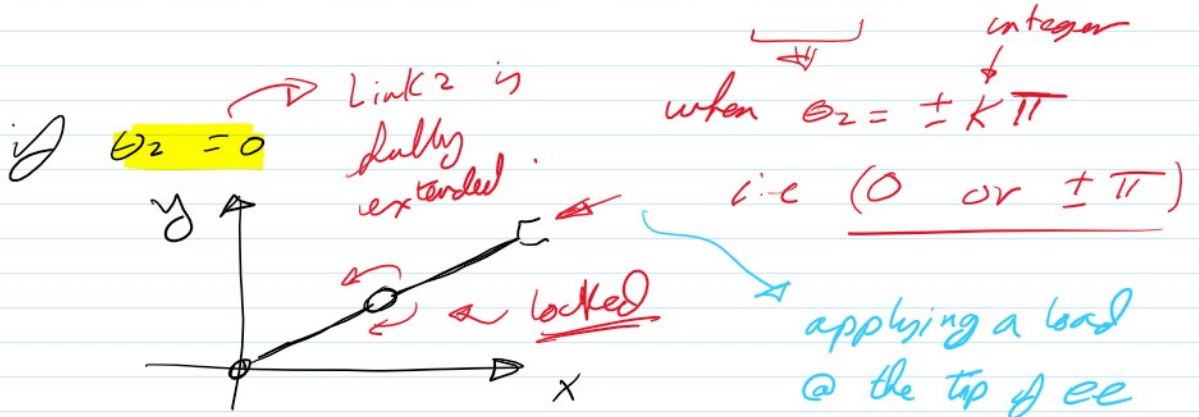 integer
when θ2 = ± K π
i.e (0 or ± π)
i) θ2 = 0
Link 2 is
fully
extended.
y
locked
x
applying a load
@ the tip of ee